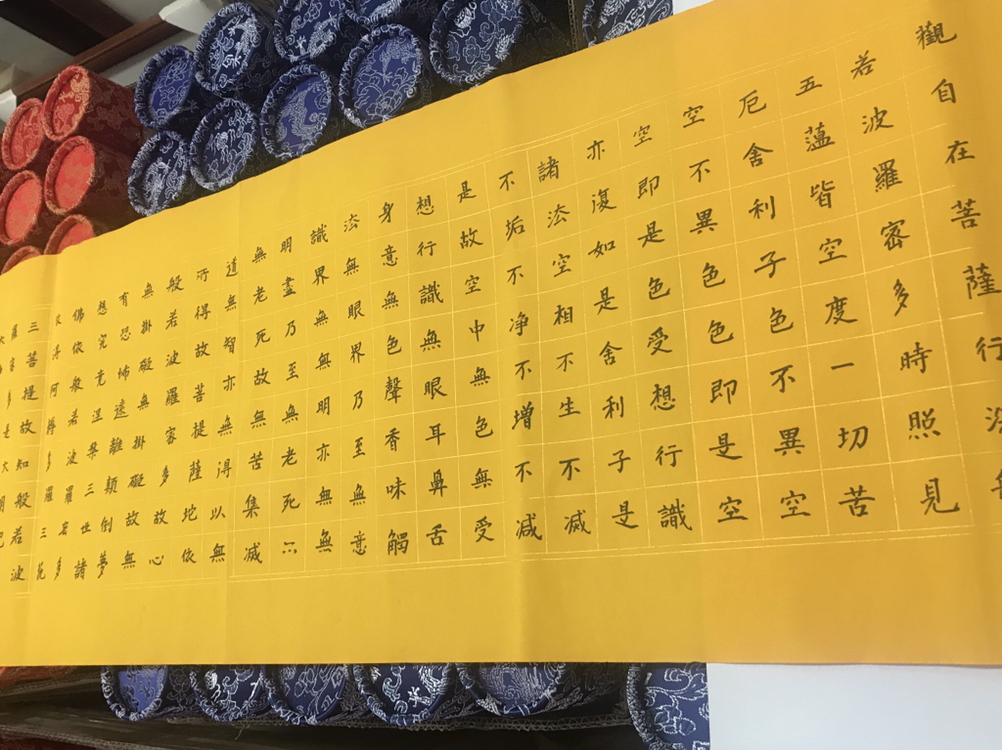 觀自在菩薩行深
若波羅密多時照見
五藴皆空度一切苦
厄舍利子色不異空
空不異色色即是空
空即是色受想行識
亦復如是舍利子是
諸法空相不生不滅
不垢不净不增不减
是故空中無色無受
想行識無眼耳鼻舌
身意無色聲香味觸
法無眼界乃至無意
識界無無明亦無無
明盡乃至無老死亦
無老死故無苦集滅
道無智亦無得以無
所得故菩提薩埵依
般若波羅密多故心
無掛礙無掛礙故無
有恐怖遠離顛倒夢
想究竟涅槃三世諸
佛依般若波羅密多
得阿耨多羅三藐
三菩提故知般若波
羅密多是大